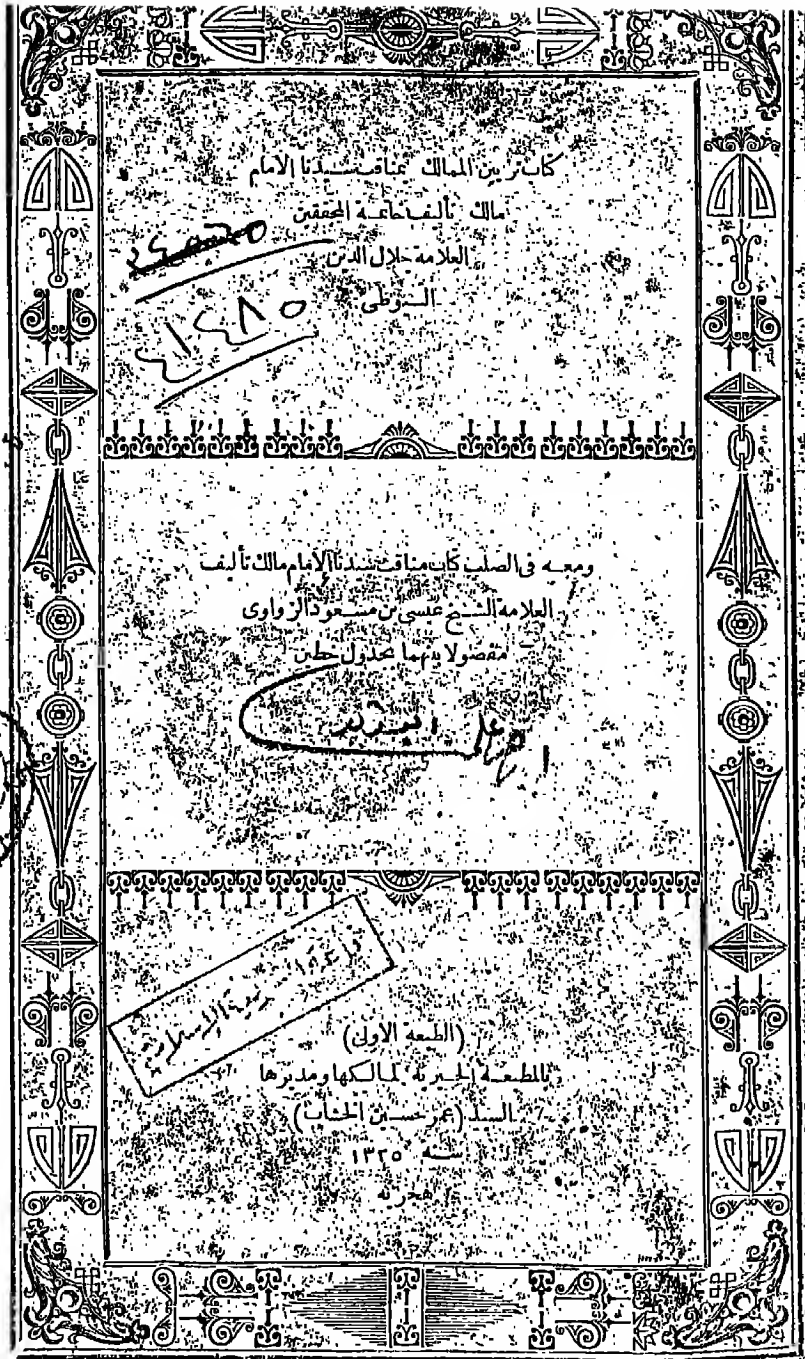 كتاب تزيين الممالك بمناقب سيدنا الامام
مالك تأليف خاتمة المحققين
العلامة جلال الدين
السيوطى
٤١٤٨٠
ومعه فى الصلب كتاب مناقب سيدنا الامام مالك تأليف
العلامة الشيخ عيسى بن مسعود الزواوى
مفصولا بينهما بجدول حلية
(الطبعة الاولى)
بالمطبعة الخيرية لمالكها ومديرها
السيد (عمر حسين الخشاب)
سنة ١٣٢٥
هجرية